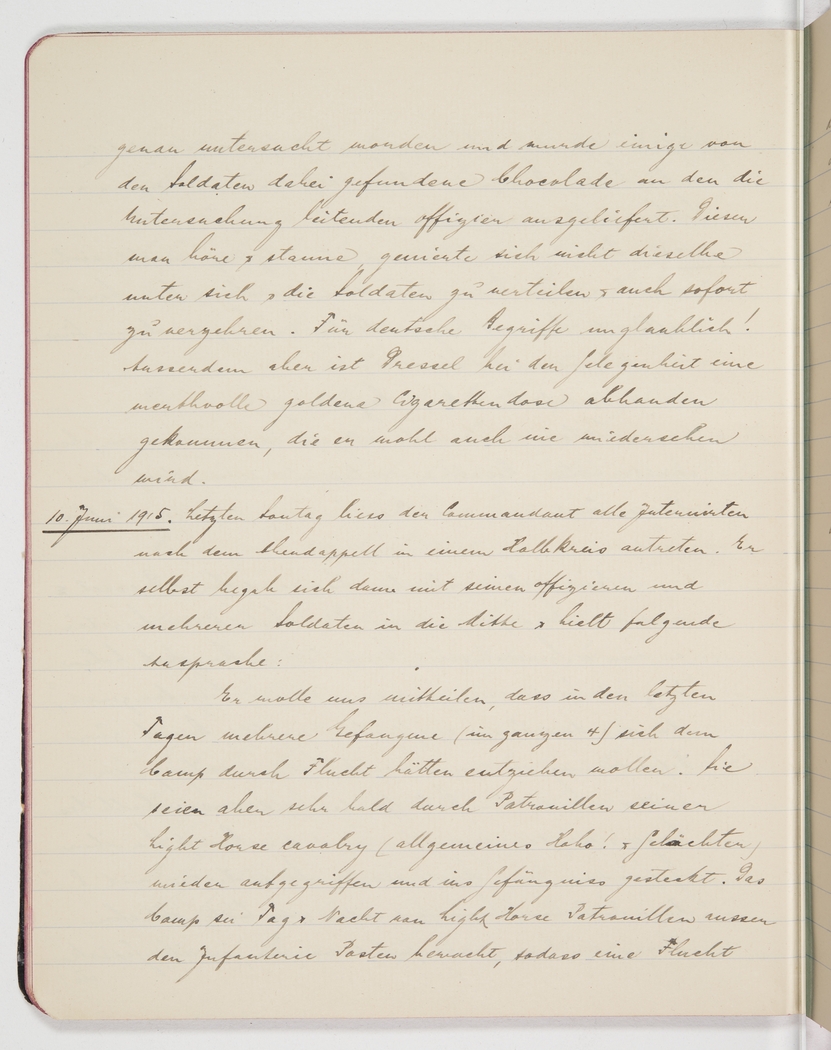 genau untersucht worden und wurde einige von
den Soldaten dabei gefundene Chocolade an den die
Untersuchung leitenden Offizier ausgeliefert. Dieser
man höre & staune, genierte sich nicht dieselbe
unter sich & die Soldaten zu verteilen & auch sofort
zu verzehren. Für deutsche Begriffe unglaublich!
Ausserdem aber ist Dressel bei der Gelegenheit eine
werthvolle goldene Cigarettendose abhanden
gekommen, die er wohl auch nie wiedersehen
wird.
10. Juni 1915. Letzten Sontag liess der Commandant alle Internirten
nach dem Abendappell in einem Halbkreis antreten. Er
selbst begab sich dann mit seinen Offizieren und
mehreren Soldaten in die Mitte & hielt folgende
Ansprache:
Er wolle uns mittheilen, dass in den letzten
Tagen mehrere Gefangene (im ganzen 4) sich dem
Camp durch Flucht hätten entziehen wollen. Sie
seien aber sehr bald durch Patrouillen seiner
Light Horse cavalry (allgemeines Hoho! & Gelächter)
wieder aufgegriffen und ins Gefängniss gesteckt. Das
Camp sei Tag & Nacht von Light Horse Patrouillen ausser
den Infanterie Posten bewacht, sodass eine Flucht